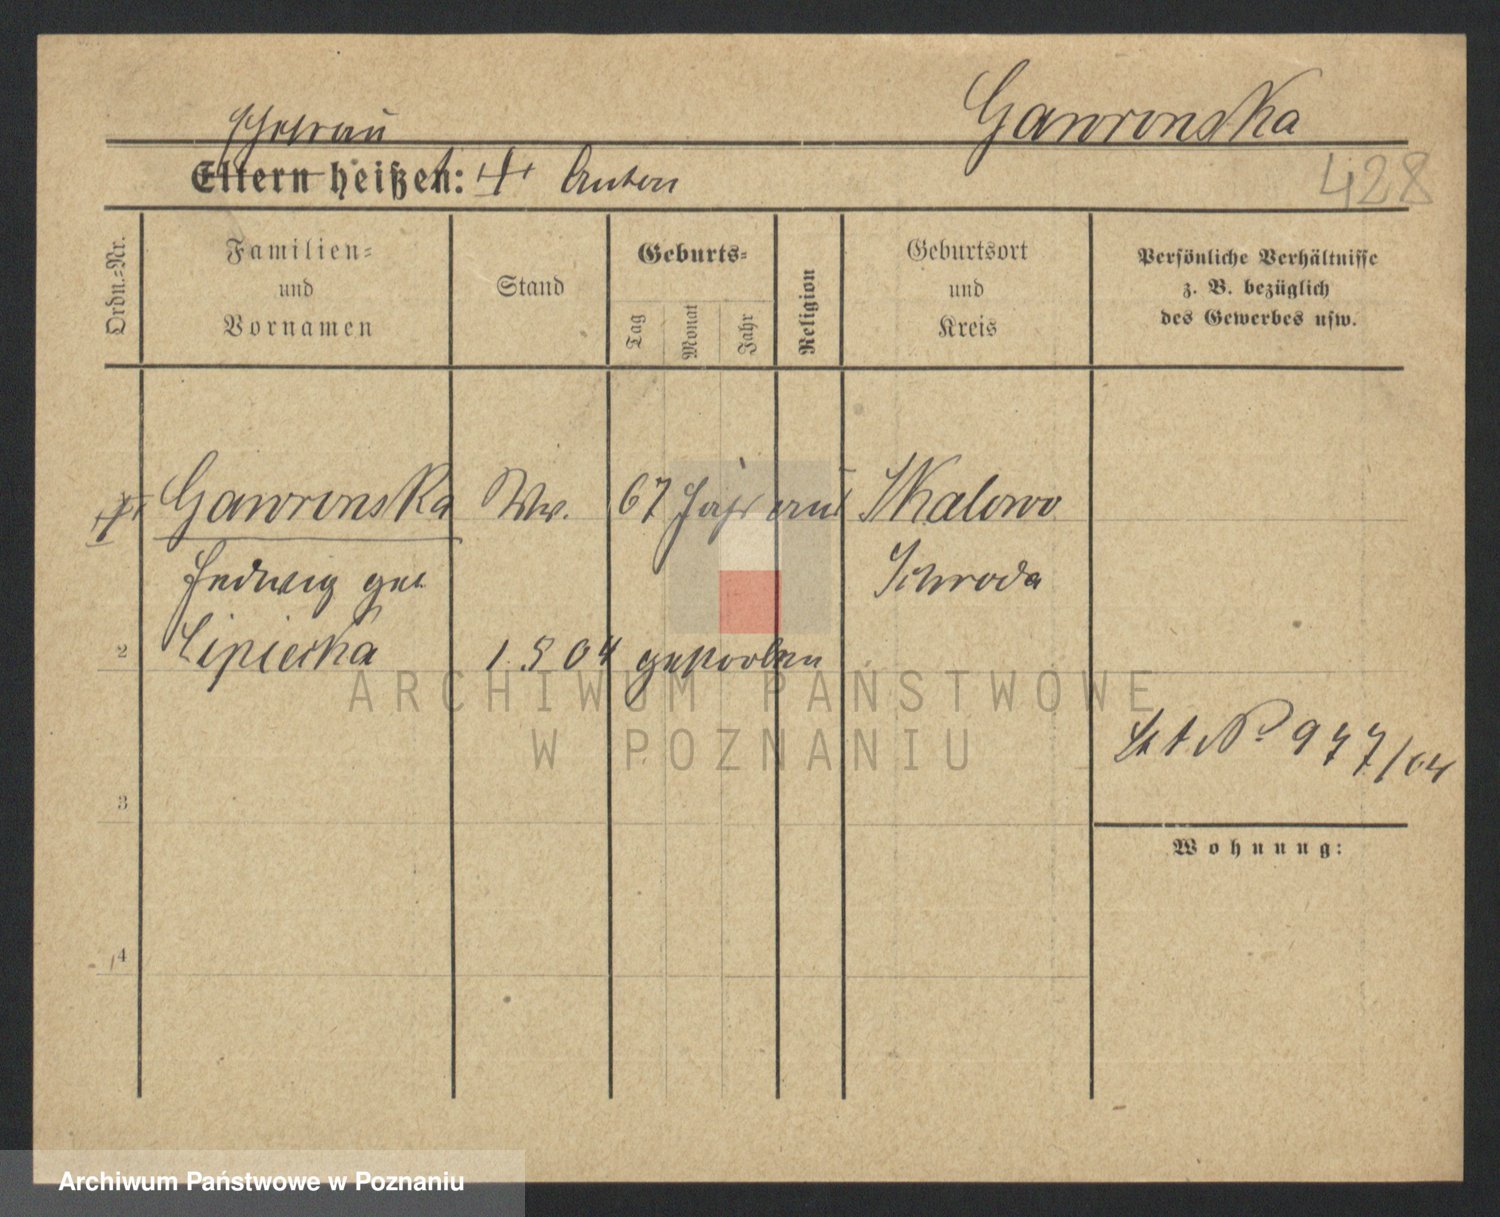 Gawronska
Ehefrau
Eltern heißen: † Anton
428
Ordn.-Nr.
Familien-
und
Vornamen
Stand
Geburts-
Tag
Monat
Jahr
Religion
Geburtsort
und
Kreis
Persönliche Verhältnisse
z. B. bezüglich
des Gewerbes usw.
Gawronska Ww. 67 Jahr Skalowo
Hedwig geb Schroda
2 Lipiecka 1.5 04 gestorben
ARCHIWUM PAŃSTWOWE
W POZNANIU
St A No 977/04
3
Wohnung:
4
Archiwum Państwowe w Poznaniu